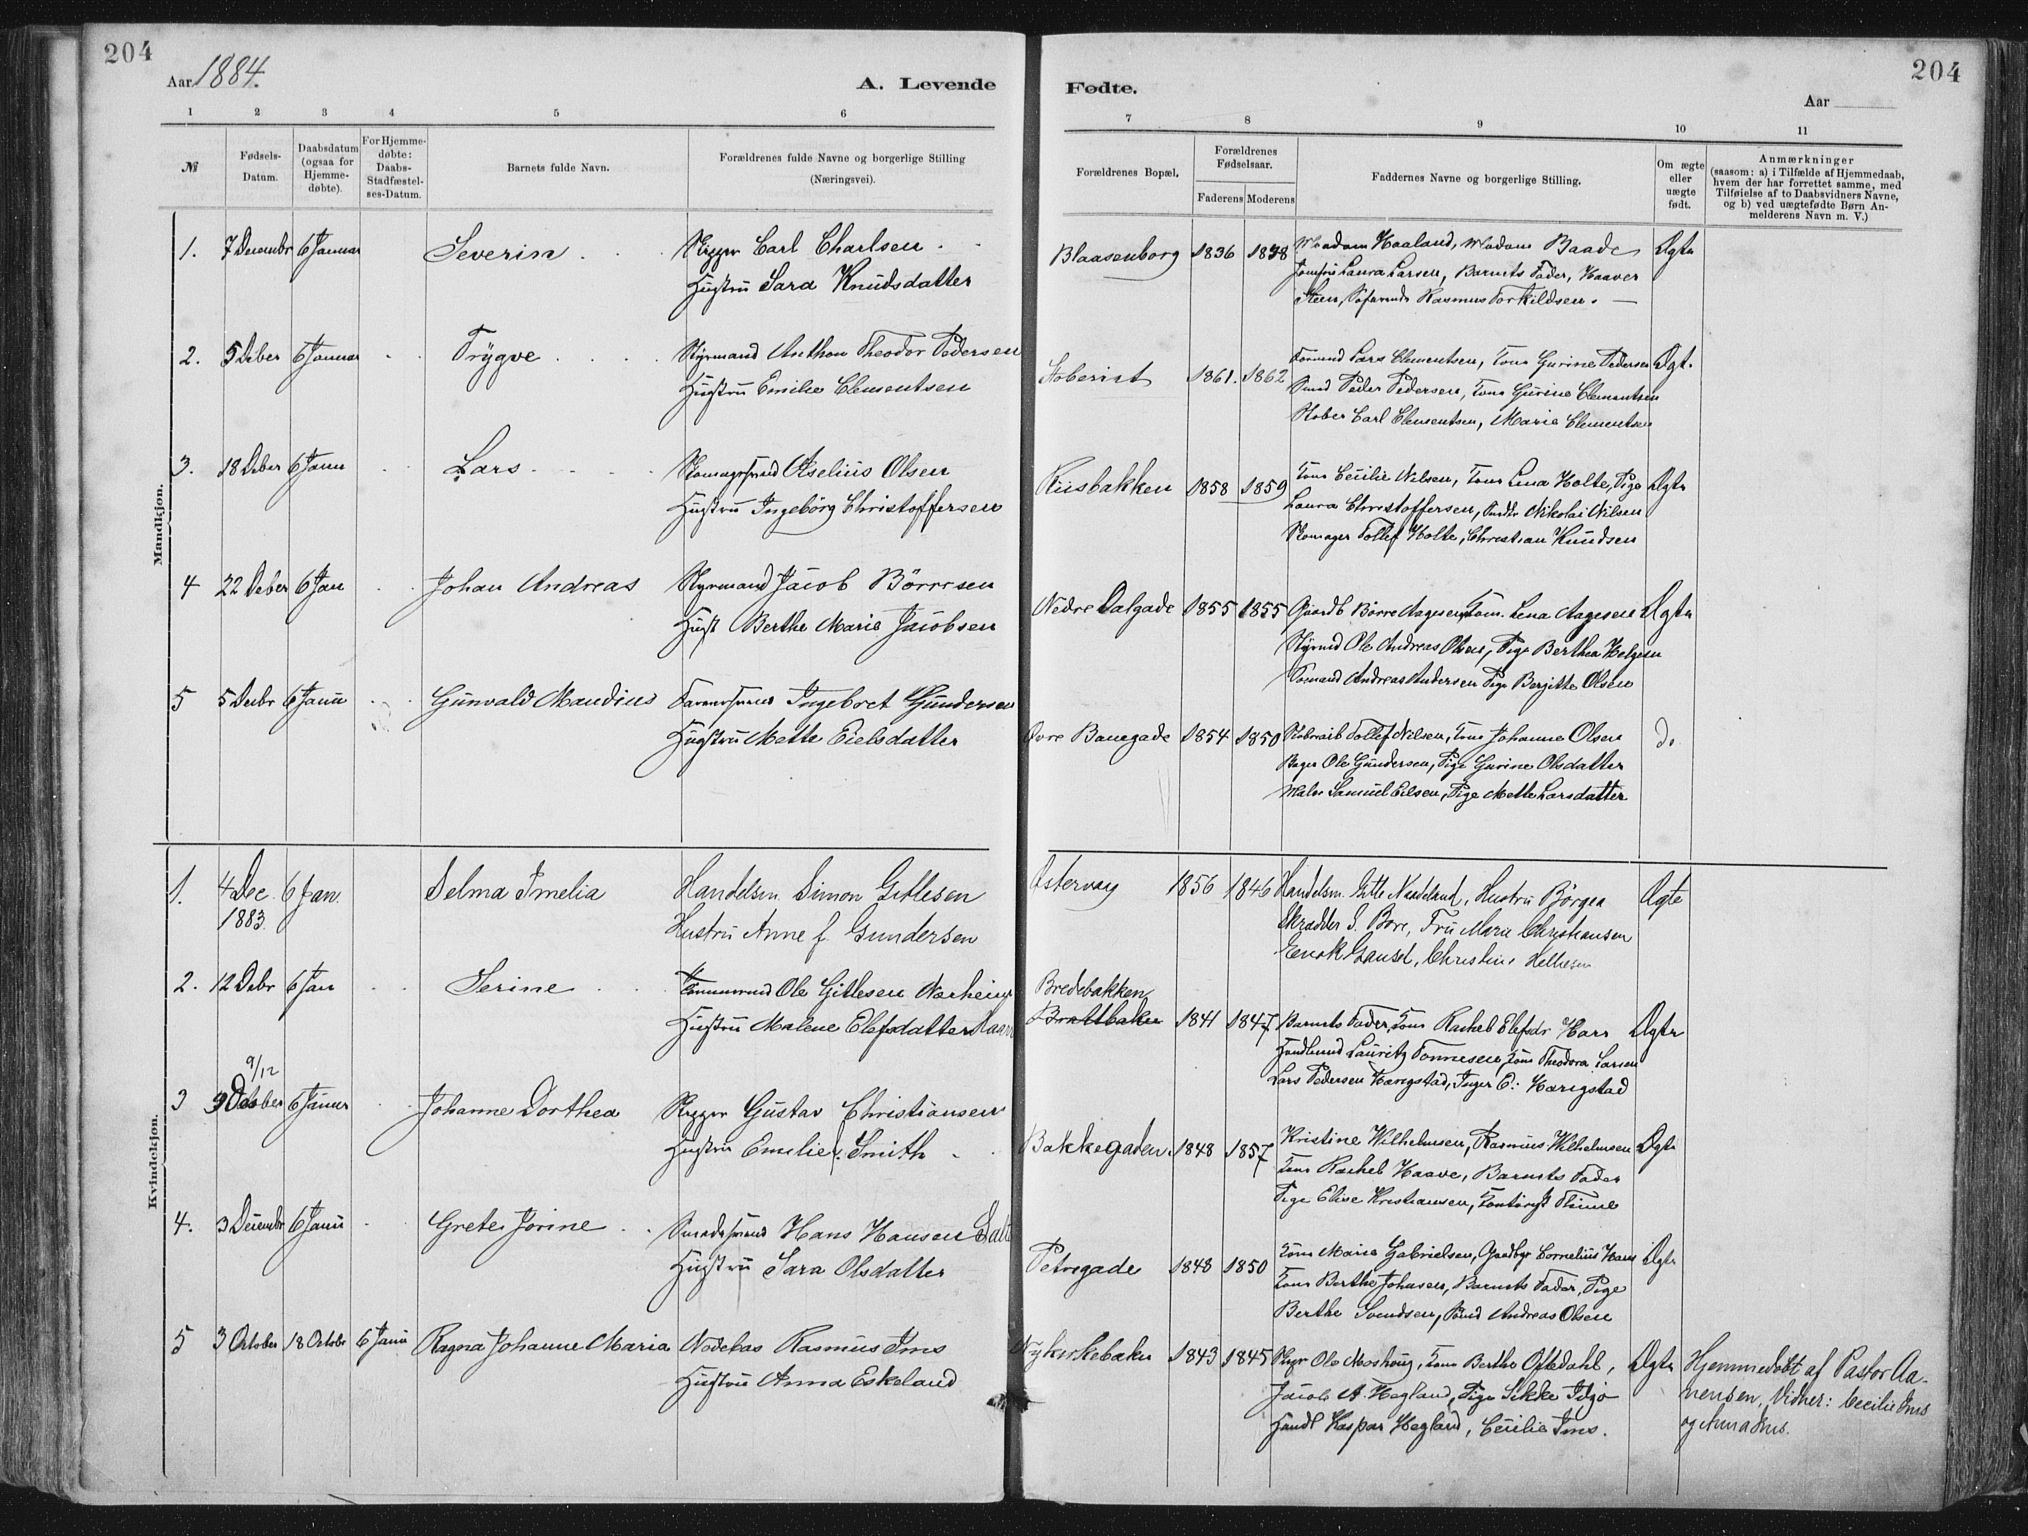 204
204
Aar 1884.
A. Levende
Fødte.
Aar
1 2 3 4 5 6
7 8 9 10 11
№
Fødsels-
Datum.
Daabsdatum
(ogsaa for
Hjemme-
døbte).
For Hjemme-
døbte:
Daabs-
Stadfæstel-
ses-Datum.
Barnets fulde Navn.
Forældrenes fulde Navne og borgerlige Stilling
(Næringsvei).
Forældrenes Bopæl.
Forældrenes
Fødselsaar.
Faderens Moderens
Faddernes Navne og borgerlige Stilling.
Om ægte
eller
uægte
født.
Anmærkninger
(saasom: a) i Tilfælde af Hjemmedaab,
hvem der har forrettet samme, med
Tilføielse af to Daabsvidners Navne,
og b) ved uægtefødte Børn An-
melderens Navn m. V.)
Mandkjøn.
1. 7 Decembr 6 Januar Severin Skipper Carl Charlsen
Hustru Sara Knudsdatter
Blaasenborg 1836 1838 Madam Haaland, Madam Baade Ægte
Jomfru Laura Larsen, Barnets Fader, Haaver
Steen, Søfarende Rasmus Torkildsen.
2. 5 Dcber 6 Januar Trygve Styrmand Anthon Theodor Pedersen
Hustru Emilie Clementsen
1861. 1862 Formand Lars Clementsen, Kone Gurine Pedersen Ægt.
Smed Peder Pedersen, Kone Gurine Clementsen
Støber Carl Clementsen, Marie Clementsen
3. 18 Dcber 6 Janu Lars Skomagersvend Aselius Olsen
Hustru Ingeborg Christoffersen
Riisbakken 1858 1859 Kone Cecilie Nilsen, Kone Lena Holte, Pige Ægte
Laura Christoffersen, Nikolai Nilsen
Skomager Tollef Holte, Christian Knudsen
4 22 Dcber 6 Jan Johan Andreas Styrmand Jacob Børresen
Hust Berthe Marie Jacobsen
Nedre Dalgade 1855 1855 Gaardb Børre Aagesen, Kone Lena Aagesen Ægte
Styrmd Ole Andreas Olsen, Pige Berthea Helgesen
Sømand Andreas Andersen Pige Bergitte Olsen
5 5 Decbr 6 Janu Gunvald Maudius Farversvend Ingebret Gundersen
Hustru Mette Eielsdatter
Øvre Banegade 1854 1850 Tollef Nilsen, Kone Johanne Olsen do
Bager Ole Gundersen, Pige Gurine Olsdatter
Maler Samuel Eilsen, Pige Mette Larsdatter
Kvindekjøn.
1. 4 Dec. 6 Jan. Selma Amelia Handelsm. Simon Gitlesen
1883. Hustru Anne f. Gundersen
Østervaag 1856 1846 Handelsm. Gitle Nædeland, Hustru Børgea Ægte
Skrædder S. Bore, Fru Marie Christiansen
Enok Gausel, Christine Helliesen
2. 12 Dcbr 6 Jan Serine Ole Gitlesen Nærheim
Hustru Malene Elefsdatter Haar
Bredebakken
Brattbaken 1841 1847 Barnets Fader, Kone Rachel Elefsdr Haar Ægte
Lauritz Tønnesen, Kone Theodora Larsen
Lars Pedersen Harestad, Inger E: Harigstad
9/12
3 9 October 6 Januar Johanne Dorthea Skipper Gustav Christiansen
Hustru Emilie f. Smith
Bakkegaden 1848 1857 Kristine Wilhelmsen, Rasmus Wilhelmsen Ægte
Kone Rachel Haave, Barnets Fader
Pige Elise Kristiansen, Kontorist Thime
4. 3 Decembr 6 Janu Grete Jørine Smedesvend Hans Hansen
Hustru Sara Olsdatter
Petrigade 1848 1850 Kone Marie Gabrielsen, Gaardbr Cornelius Hans Ægte
Kone Berthe Johnsen, Barnets Fader, Pige
Berthe Svendsen, Andreas Olsen
5 3 October 18 Octobr 6 Janu Ragna Johanne Maria Nodebas Rasmus Ims
Hustru Anna Eskeland
Nykirkebaken 1843 1845 Ole Moshoug, Kone Berthe Oftedahl, Ægte
Jacob A. Hegland, Pige Sikke Idsø
Handl Kaspar Hegland, Cecilie Ims.
Hjemmedøbt af Pastor Aa-
nensen, Vidner: Cecilie Ims
og Anna Ims.